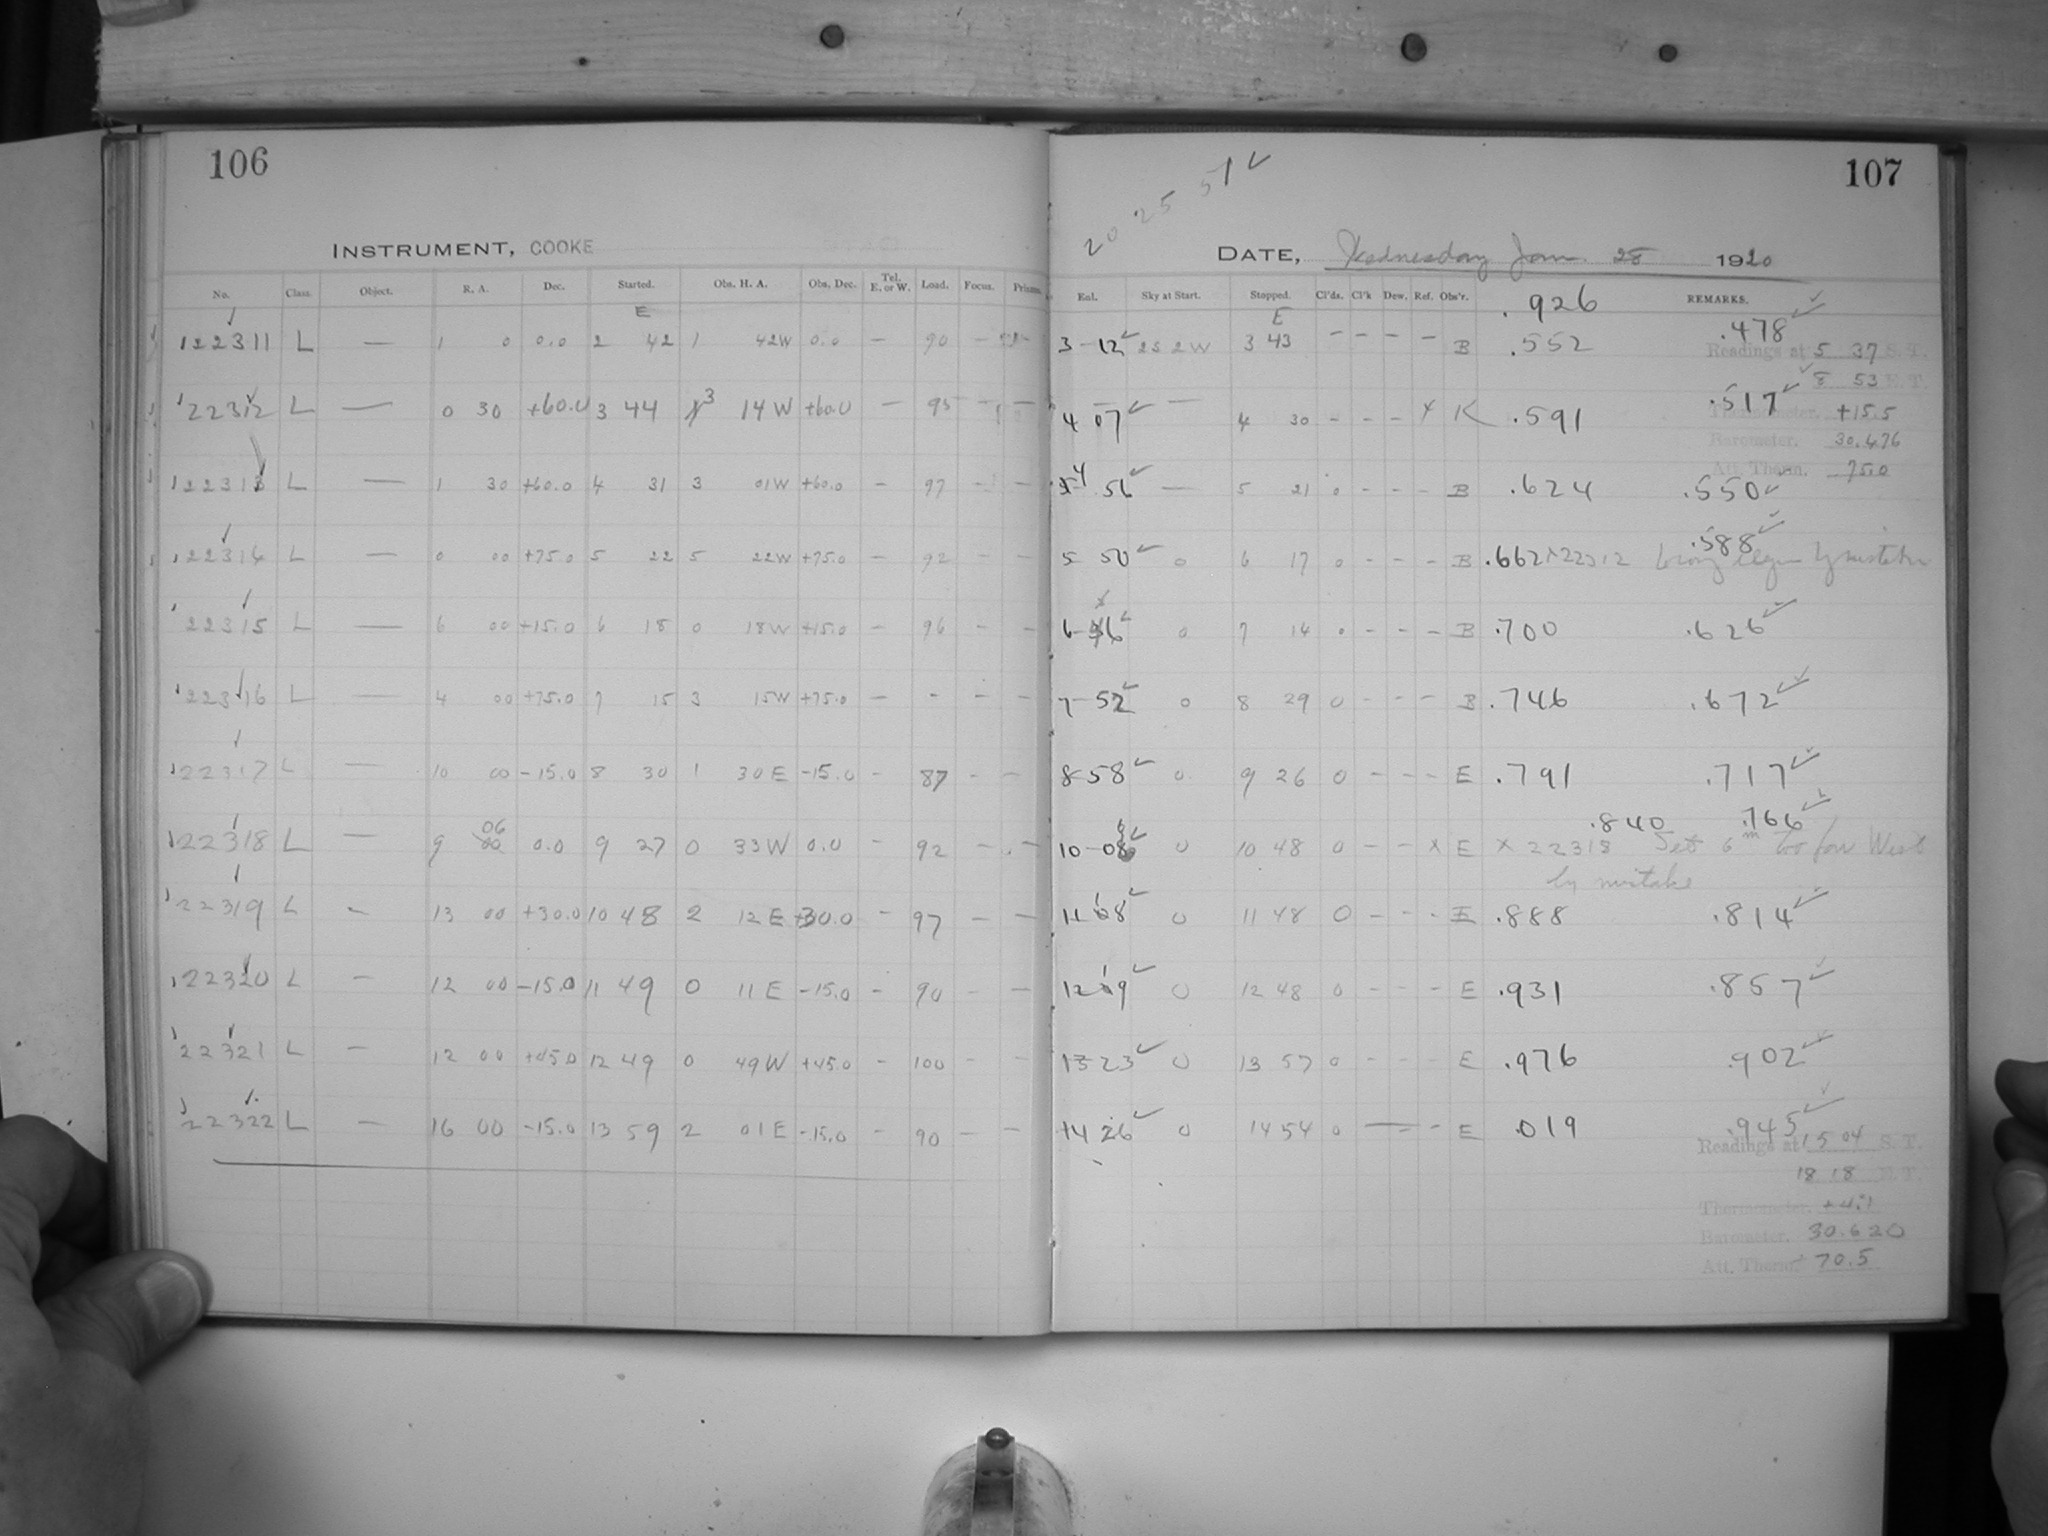 106
INSTRUMENT, COOKE
No. Class. Object. R. A. Dec. Started. Obs. H. A. Obs. Dec. Tel. E. or W. Load. Focus.
E
122311 L — 1 0 0.0 2 42 1 42W 0.0 — 90 —
122312 L — 0 30 +60.0 3 44 3 14 W +60.0 — 95 — —
122313 L — 1 30 +60.0 4 31 3 01W +60.0 — 97 — —
122314 L — 0 00 +75.0 5 22 5 22W +75.0 — 92 — —
122315 L — 6 00 +15.0 6 18 0 18W +15.0 — 96 — —
122316 L — 4 00 +75.0 7 15 3 15W +75.0 — - — —
122317 L — 10 00 -15.0 8 30 1 30 E -15.0 - 87 - -
122318 L — 9 06 0.0 9 27 0 33W 0.0 - 92 - -
122319 L - 13 00 +30.0 10 48 2 12 E +30.0 - 97 — —
122320 L — 12 00 -15.0 11 49 0 11 E -15.0 - 90 - —
122321 L — 12 00 +45.0 12 49 0 49W +45.0 - 100 - -
122322 L — 16 00 -15.0 13 59 2 01E -15.0 - 90 — —
107
20 25 51 ✓
DATE, Wednesday Jan. 28 1920
Sky at Start. Stopped. Cl'ds. Cl'k Dew. Ref. Obs'r. REMARKS.
.926
E
3-12 ✓ 2S 2W 3 43 - - - - B .552 .478 ✓
Readings at 5 37 S. T.
8 53 E. T.
4 07 ✓ — 4 30 - - - x K .591 .517 ✓
Thermometer. +15.5
Barometer. 30.476
Att. Therm. 75.0
4 56 ✓ — 5 21 0 - - - B .624 .550 ✓
5 50 ✓ 0 6 17 0 - - - B .662 .588 ✓
x22312 wrong region by mistake
6-46 ✓ 0 7 14 0 - - - B .700 .626 ✓
7-52 ✓ 0 8 29 0 - - - B .746 .672 ✓
8 58 ✓ 0 9 26 0 - - - E .791 .717 ✓
.840 .766 ✓
10-08 ✓ 0 10 48 0 - - x E x 22318 Set 6 m too far West
by mistake
11 18 ✓ 0 11 48 0 - - - E .888 .814 ✓
12 19 ✓ 0 12 48 0 - - - E .931 .857 ✓
13 23 ✓ 0 13 57 0 - - - E .976 .902 ✓
14 26 ✓ 0 14 54 0 — - - E .019 .945 ✓
Readings at 15 04 S. T.
18 18 E. T.
Thermometer. +4.1
Barometer. 30.620
Att. Therm. 70.5